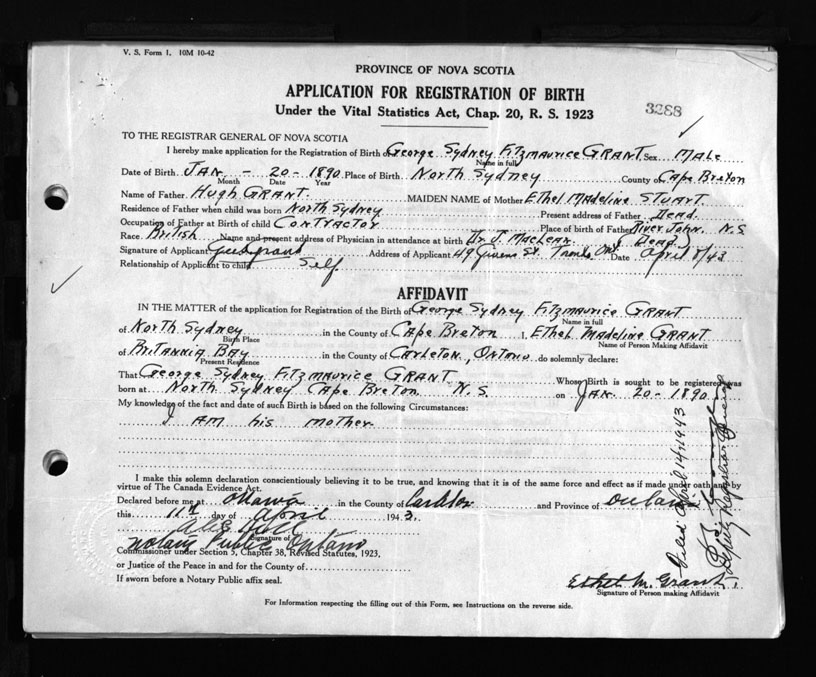 V. S. Form 1. 10M 10-42
PROVINCE OF NOVA SCOTIA
APPLICATION FOR REGISTRATION OF BIRTH
Under the Vital Statistics Act, Chap. 20, R. S. 1923
3288
TO THE REGISTRAR GENERAL OF NOVA SCOTIA
I hereby make application for the Registration of Birth of George Sydney Fitzmaurice GRANT Sex MALE
Name in full
Date of Birth JAN. - 20 - 1890 Place of Birth North Sydney County of Cape Breton
Month Date Year
Name of Father Hugh GRANT. MAIDEN NAME of Mother Ethel Madeline STUART.
Residence of Father when child was born North Sydney Present address of Father Dead.
Occupation of Father at Birth of child CONTRACTOR Place of Birth of Father River John. N.S
Race British Name and present address of Physician in attendance at birth Dr J. MacLean. (Dead)
Signature of Applicant Address of Applicant 49 St. Ont. Date April 8/43
Relationship of Applicant to child Self
AFFIDAVIT
IN THE MATTER of the application for Registration of the Birth of George Sydney Fitzmaurice GRANT
Name in full
of North Sydney in the County of Cape Breton I, Ethel Madeline GRANT
Birth Place Name of Person Making Affidavit
of Britannia Bay in the County of Carleton, Ontario do solemnly declare:
Present Residence
That George Sydney Fitzmaurice GRANT Whose Birth is sought to be registered was
born at North Sydney Cape Breton N.S. on JAN. 20 - 1890
My knowledge of the fact and date of such Birth is based on the following Circumstances:
I AM his mother.
I make this solemn declaration conscientiously believing it to be true, and knowing that it is of the same force and effect as if made under oath and by
virtue of The Canada Evidence Act.
Declared before me at Ottawa in the County of Carleton and Province of Ontario
this 11th day of April 1943.
Signature of
Notary Public Ontario
Commissioner under Section 5, Chapter 38, Revised Statutes, 1923.
or Justice of the Peace in and for the County of
If sworn before a Notary Public affix seal.
Ethel M. Grant.
Signature of Person making Affidavit
For Information respecting the filling out of this Form, see Instructions on the reverse side.
Filed April 14, 1943
Deputy Registrar General